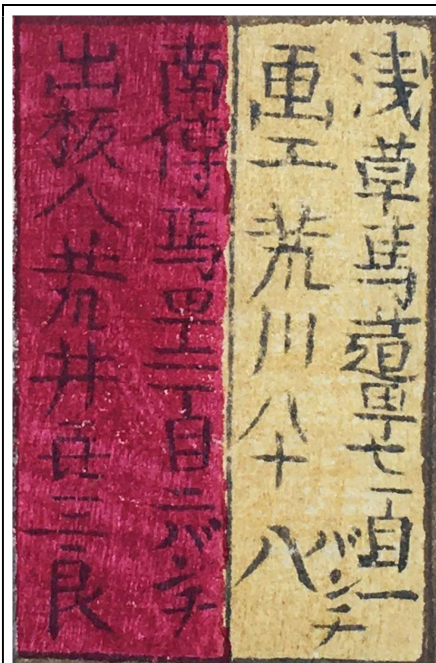 浅草馬道甼七丁目一バンチ
画工荒川八十八
南傳馬甼二丁目二バンチ
出板人荒井三良